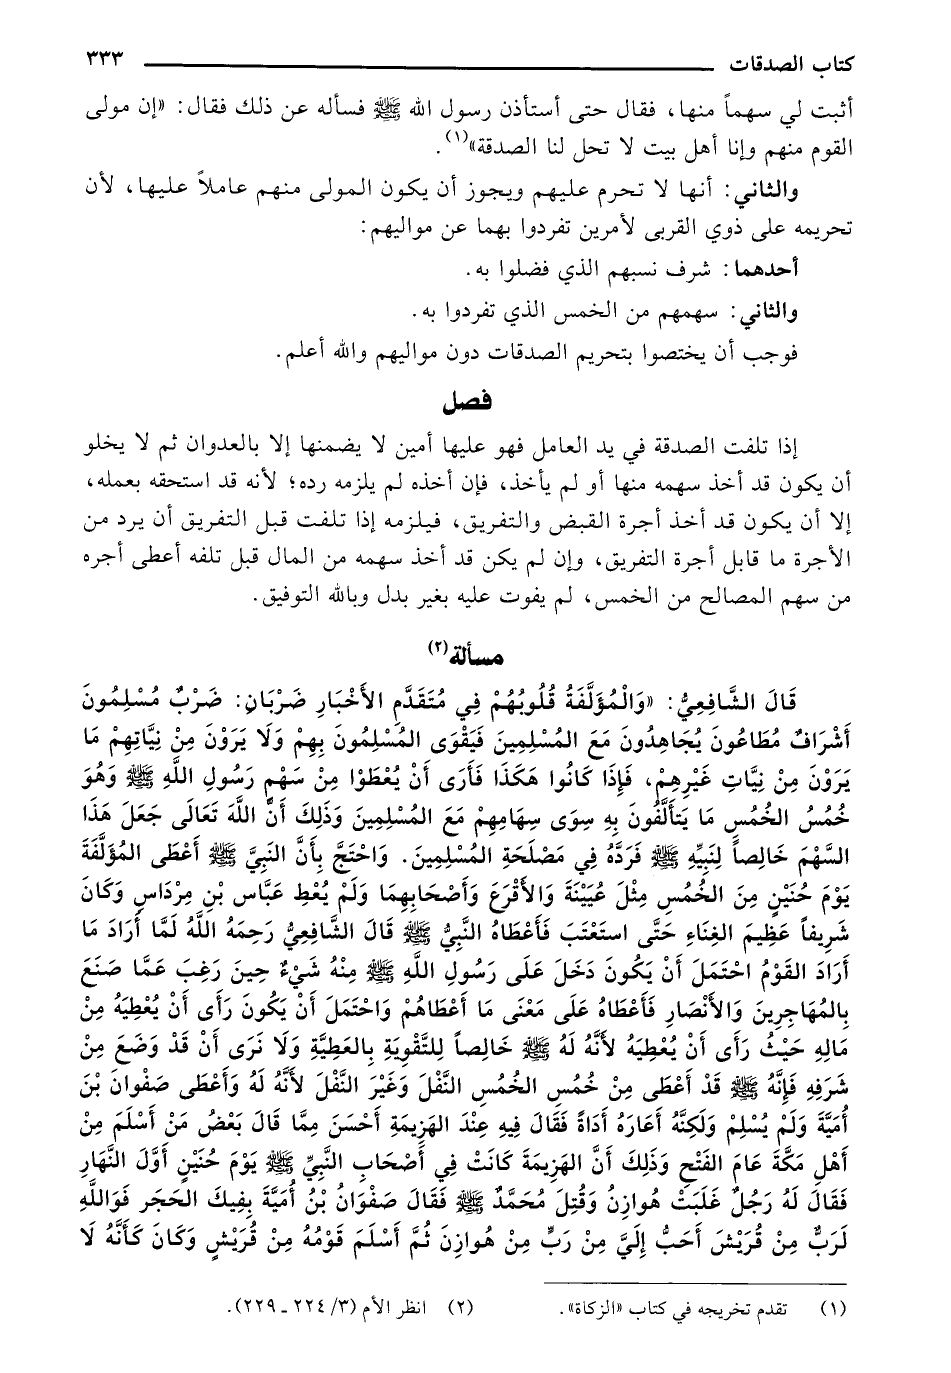 كتاب الصدقات ٣٣٣
أثبت لي سهماً منها، فقال حتى أستأذن رسول الله ﷺ فسأله عن ذلك فقال: «إن مولى
القوم منهم وإنا أهل بيت لا تحل لنا الصدقة»(١).
والثاني: أنها لا تحرم عليهم ويجوز أن يكون المولى منهم عاملاً عليها، لأن
تحريمه على ذوي القربى لأمرين تفردوا بهما عن مواليهم:
أحدهما: شرف نسبهم الذي فضلوا به.
والثاني: سهمهم من الخمس الذي تفردوا به.
فوجب أن يختصوا بتحريم الصدقات دون مواليهم والله أعلم.
فصل
إذا تلفت الصدقة في يد العامل فهو عليها أمين لا يضمنها إلا بالعدوان ثم لا يخلو
أن يكون قد أخذ سهمه منها أو لم يأخذ، فإن أخذه لم يلزمه رده؛ لأنه قد استحقه بعمله،
إلا أن يكون قد أخذ أجرة القبض والتفريق، فيلزمه إذا تلفت قبل التفريق أن يرد من
الأجرة ما قابل أجرة التفريق، وإن لم يكن قد أخذ سهمه من المال قبل تلفه أعطى أجره
من سهم المصالح من الخمس، لم يفوت عليه بغير بدل وبالله التوفيق.
مسألة(٢)
قَالَ الشَّافِعِيُّ: «وَالْمُؤَلَّفَةُ قُلُوبُهُمْ فِي مُتَقَدَّمِ الأَخْبَارِ ضَرْبَانِ: ضَرْبٌ مُسْلِمُونَ
أَشْرَافٌ مُطَاعُونَ يُجَاهِدُونَ مَعَ المُسْلِمِينَ فَيَقْوَى المُسْلِمُونَ بِهِمْ وَلَا يَرَوْنَ مِنْ نِيَّاتِهِمْ مَا
يَرَوْنَ مِنْ نِيَّاتِ غَيْرِهِمْ، فَإِذَا كَانُوا هَكَذَا فَأَرَى أَنْ يُعْطَوْا مِنْ سَهْمِ رَسُولِ اللَّهِ ﷺ وَهُوَ
خُمُسُ الخُمُسِ مَا يَتَأَلَّفُونَ بِهِ سِوَى سِهَامِهِمْ مَعَ المُسْلِمِينَ وَذَلِكَ أَنَّ اللَّهَ تَعَالَى جَعَلَ هَذَا
السَّهْمَ خَالِصاً لِنَبِيِّهِ ﷺ فَرَدَّهُ فِي مَصْلَحَةِ المُسْلِمِينَ. وَاحْتَجَّ بِأَنَّ النَبِيَّ ﷺ أَعْطَى المُؤَلَّفَةَ
يَوْمَ حُنَيْنٍ مِنَ الخُمُسِ مِثْلَ عُيَيْنَةَ وَالأَقْرَعِ وَأَصْحَابِهِمَا وَلَمْ يُعْطِ عَبَّاس بْنِ مِرْدَاسٍ وَكَانَ
شَرِيفاً عَظِيمَ الغِنَاءِ حَتَّى اسْتَعْتَبَ فَأَعْطَاهُ النَّبِيُّ ﷺ قَالَ الشَّافِعِيُّ رَحِمَهُ اللَّهُ لَمَّا أَرَادَ مَا
أَرَادَ القَوْمُ احْتَمَلَ أَنْ يَكُونَ دَخَلَ عَلَى رَسُولِ اللَّهِ ﷺ مِنْهُ شَيْءٌ حِينَ رَغِبَ عَمَّا صَنَعَ
بِالمُهَاجِرِينَ وَالأَنْصَارِ فَأَعْطَاهُ عَلَى مَعْنَى مَا أَعْطَاهُمْ وَاحْتَمَلَ أَنْ يَكُونَ رَأَى أَنْ يُعْطِيَهُ مِنْ
مَالِهِ حَيْثُ رَأَى أَنْ يُعْطِيَهُ لأَنَّهُ لَهُ ﷺ خَالِصاً لِلتَّقْوِيَةِ بِالعَطِيَّةِ وَلَا نَرَى أَنْ قَدْ وَضَعَ مِنْ
شَرَفِهِ فَإِنَّهُ ﷺ قَدْ أَعْطَى مِنْ خُمُسِ الخُمُسِ النَّفْلَ وَغَيْرَ النَّفْلَ لأَنَّهُ لَهُ وَأَعْطَى صَفْوانَ بْنَ
أُمَيَّةَ وَلَمْ يُسْلِمْ وَلَكِنَّهُ أَعَارَهُ أَدَاةً فَقَالَ فِيهِ عِنْدَ الهَزِيمَةِ أَحْسَنَ مِمَّا قَالَ بَعْضُ مَنْ أَسْلَمَ مِنْ
أَهْلِ مَكَّةَ عَامَ الفَتْحِ وَذَلِكَ أَنَّ الهَزِيمَةَ كَانَتْ فِي أَصْحَابِ النَّبِيِّ ﷺ يَوْمَ حُنَيْنٍ أَوَّلَ النَّهَارِ
فَقَالَ لَهُ رَجُلٌ غَلَبَتْ هُوازِنُ وَقُتِلَ مُحَمَّدٌ ﷺ فَقَالَ صَفْوَانُ بْنُ أُمَيَّةَ بِفِيكَ الحَجَر فَوَاللَّهِ
لَرَبٌّ مِنْ قُرَيْشَ أَحَبُّ إِلَيَّ مِنْ رَبٍّ مِنْ هُوازِنَ ثُمَّ أَسْلَمَ قَوْمُهُ مِنْ قُرَيْشٍ وَكَانَ كَأَنَّهُ لَا
(١) تقدم تخريجه في كتاب «الزكاة».
(٢) انظر الأم (٣/ ٢٢٤ ـ ٢٢٩).